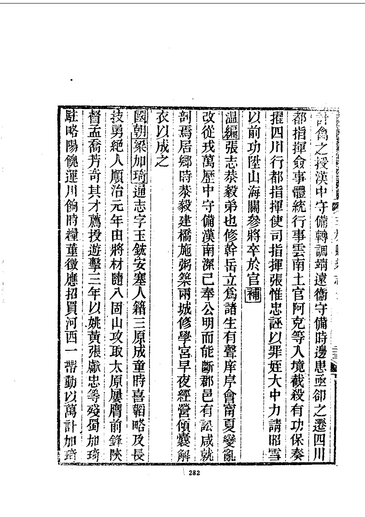 計禽之授漢中守備轉調靖遠衛守備時邊患亟卻之遷四川
都指揮僉事體統行事雲南土官阿克等入境截殺有功保奏
擢四川行都指揮使司指揮張惟忠誣以罪姪大中力請昭雪
以前功陞山海關參將卒於官補
溫編張志恭毅弟也修幹岳立爲諸生有聲庠序會甯夏變亂
改從戎萬歷中守備漢南深己奉公明而能斷郡邑有訟咸就
剖焉居鄉時恭毅建橋施粥築兩城修學宮早夜經營傾囊解
衣以成之
國朝梁加琦通志字玉鉉安塞人籍三原成童時喜韜略及長
技勇絕人順治元年由將材隨八固山攻取太原屢膺前鋒陝
督孟喬芳奇其才薦授遊擊三年以姚黃張獻忠等殘蜀加琦
駐略陽僥運川餉時糧葷徵應招買河西一帶動以萬計加琦
282